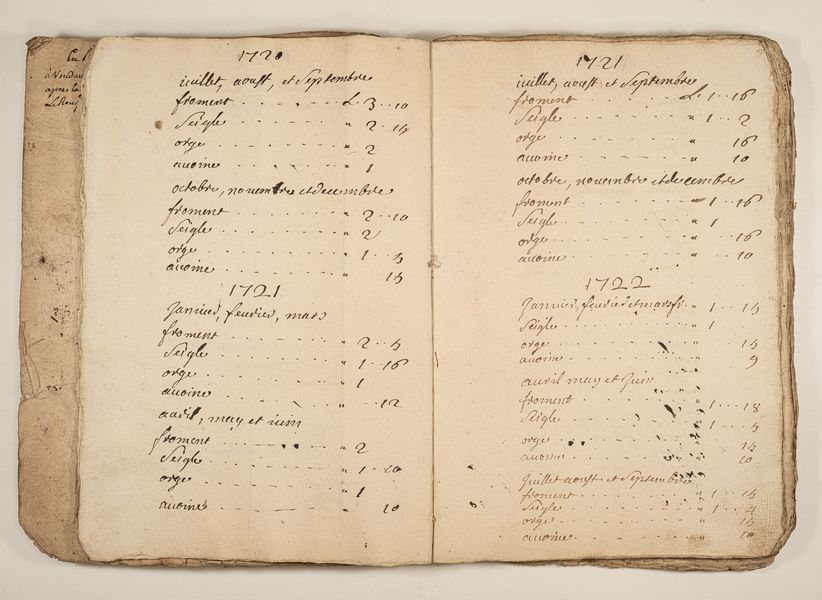 à Verdun
après la
1720
juillet, aoust, et Septembre
froment L. 3 .. 10
Seigle " 2 .. 15
orge " 2
avoine " 1
octobre, novembre et decembre
froment " 2 .. 10
Seigle " 2
orge " 1 .. 5
avoine " 15
1721
Janvier, fevrier, mars
froment " 2 .. 5
Seigle " 1 .. 16
orge " 1
avoine " .. 12
avril, may et juin
froment " 2
Seigle " 1 .. 10
orge " 1
avoine " 10
1721
juillet, aoust et Septembre
froment L. 1 .. 16
Seigle " 1 .. 2
orge " 16
avoine " 10
octobre, novembre et decembre
froment " 1 .. 16
Seigle " 1
orge " .. 16
avoine " 10
1722
Janvier, fevrier et mars fr. " 1 .. 15
Seigle " 1
orge " 15
avoine " 9
avril may et Juin
froment " 1 .. 18
Seigle " 1 .. 5
orge " 15
avoine " 10
Juillet aoust et Septembre
froment " 1 .. 15
Seigle " 1 .. 4
orge " 15
avoine " 10